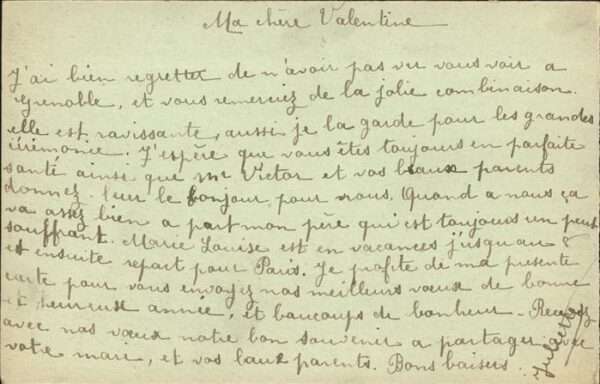 Ma chère Valentine
J'ai bien regretter de n'avoir pas vu vous voir a
Grenoble, et vous remerciez de la jolie combinaison.
elle est ravissante, aussi je la garde pour les grandes
cérémonie. J'espère que vous êtes toujours en parfaite
santé ainsi que Mr Victor et vos beaux parents
donnez-leur le bonjour pour nous. Quand a nous ça
va assez bien a part mon père qui est toujours un peu
souffrant. Marie Louise est en vacances jusquau 8
et ensuite repart pour Paris. Je profite de ma presente
carte pour vous envoyez nos meilleurs vœux de bonne
et heureuse année, et baucoups de bonheur - Recevez
avec nos vœux notre bon souvenir a partager avec
votre mari, et vos baux parents. Bons baisers.
Juliette